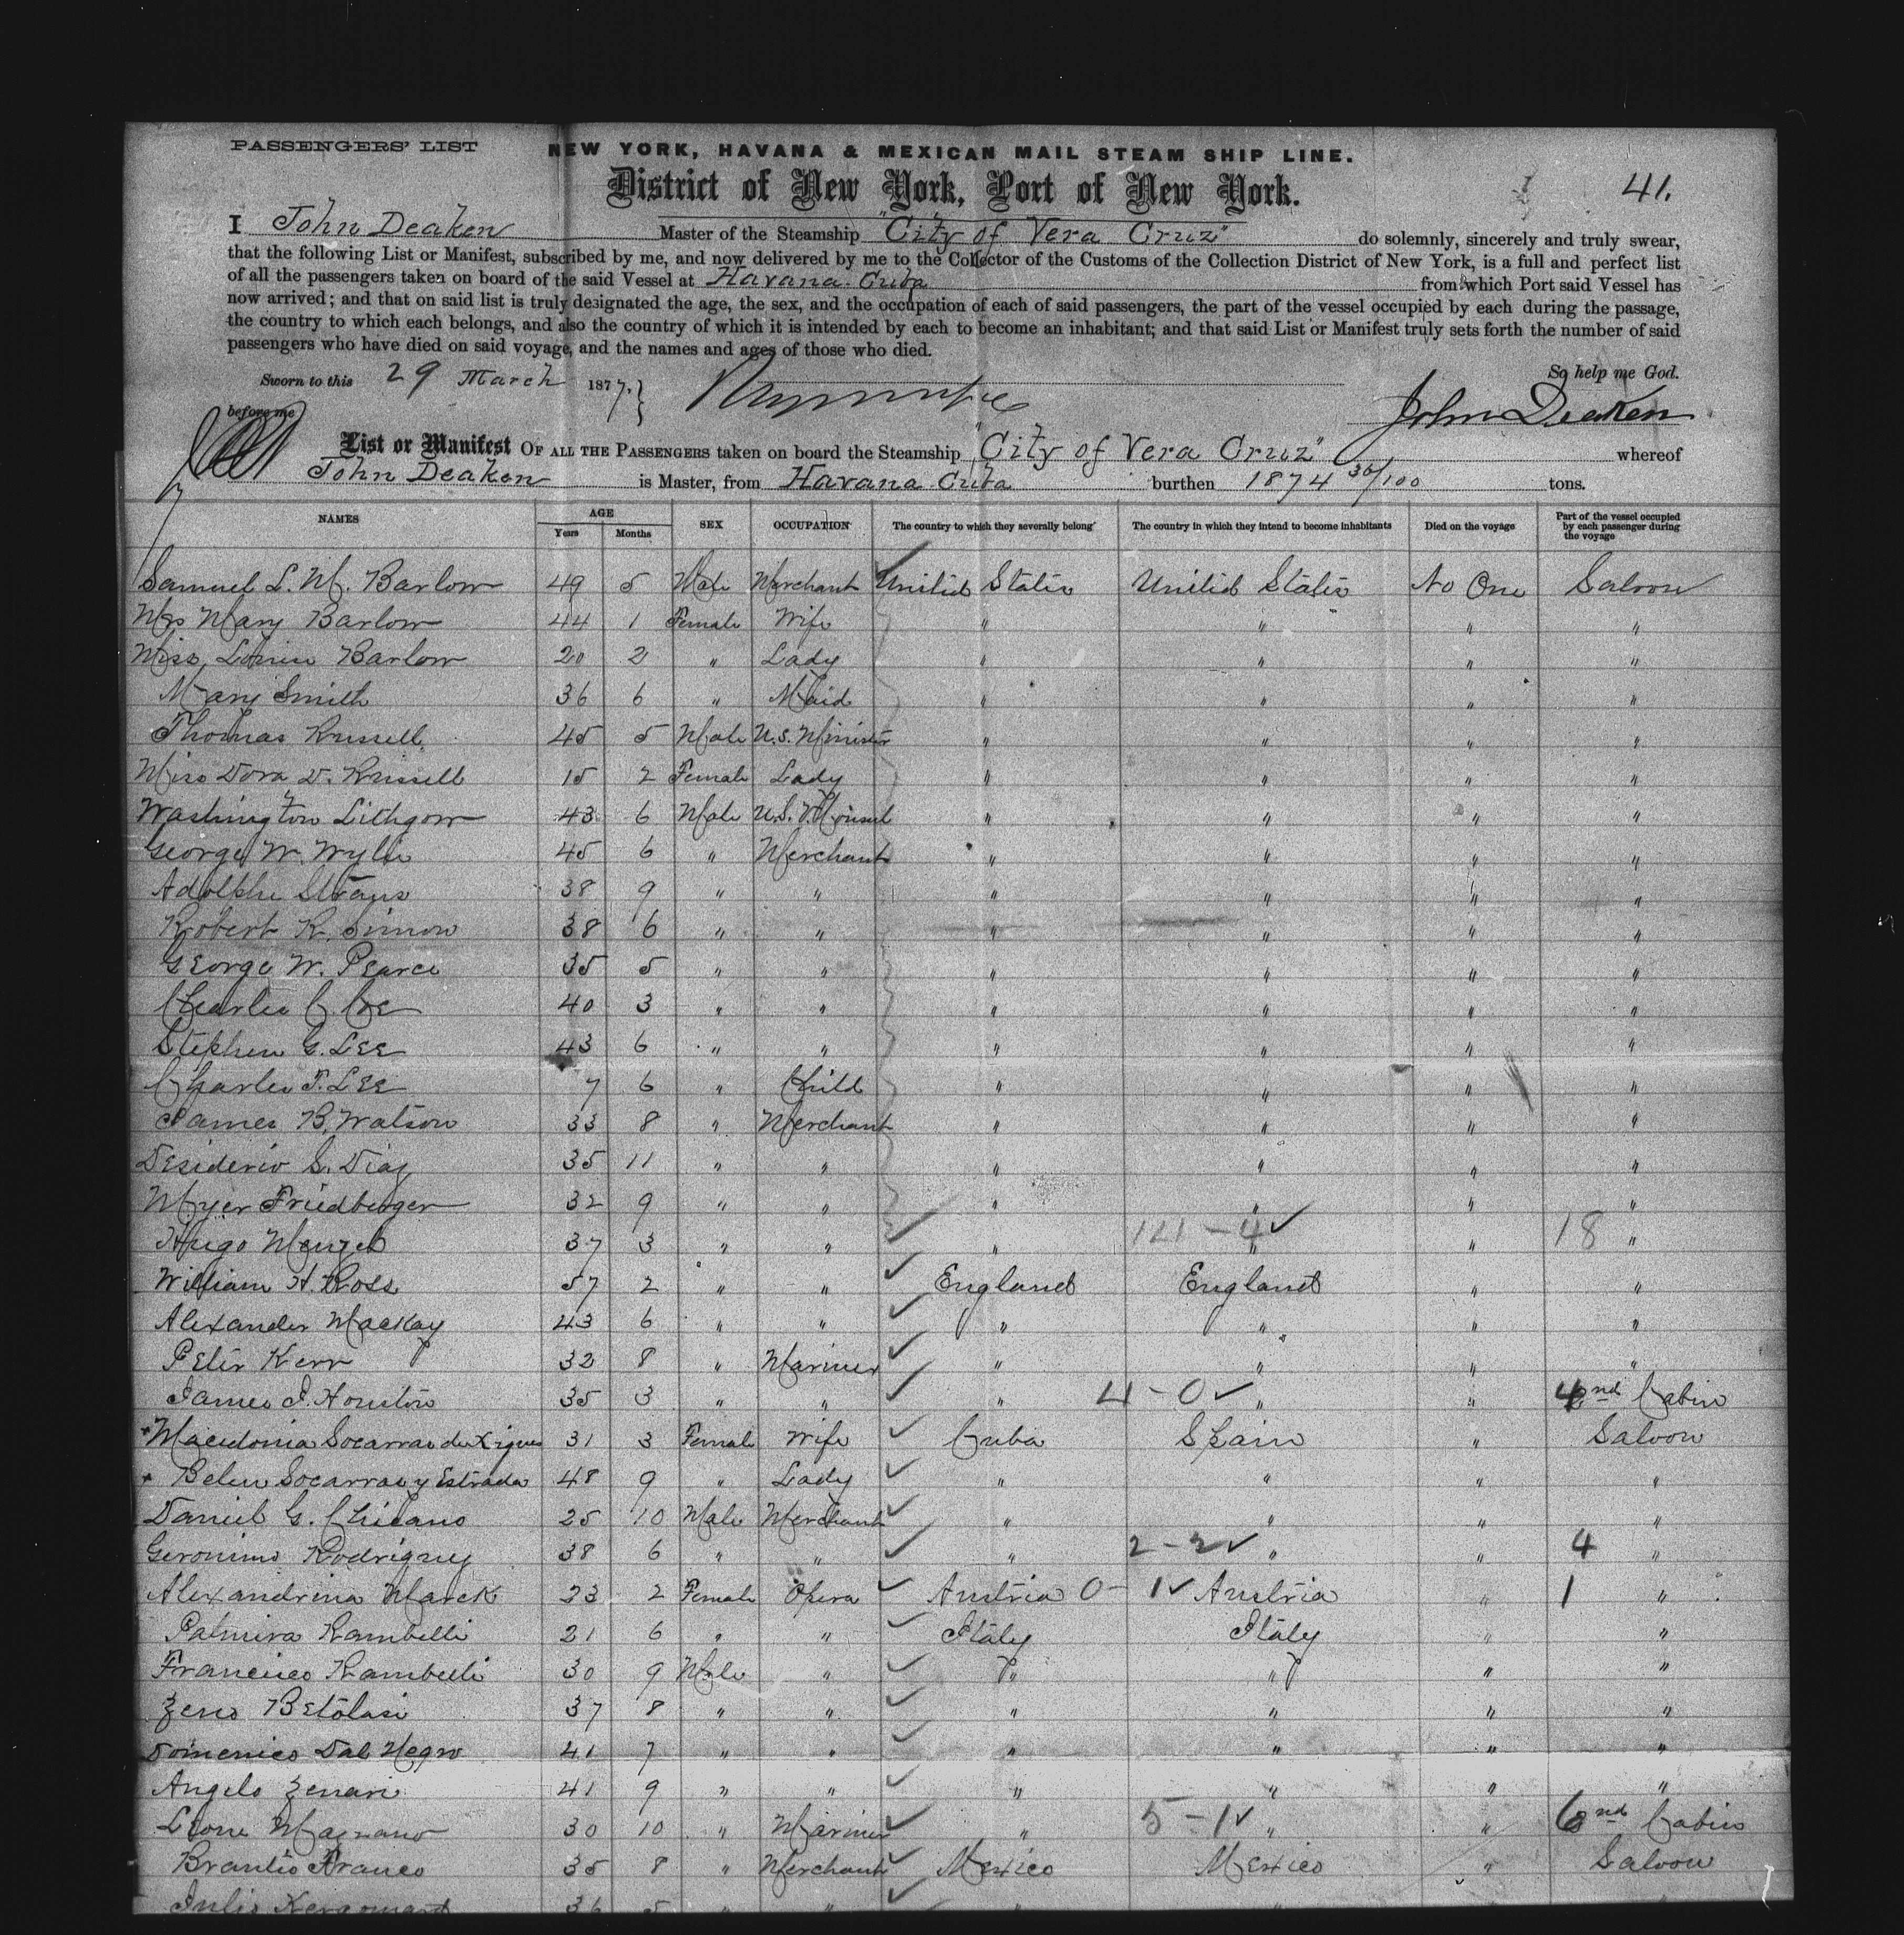 PASSENGERS' LIST
NEW YORK, HAVANA & MEXICAN MAIL STEAM SHIP LINE.
District of New York, Port of New York.
41.
I John Deaken Master of the Steamship "City of Vera Cruz" do solemnly, sincerely and truly swear,
that the following List or Manifest, subscribed by me, and now delivered by me to the Collector of the Customs of the Collection District of New York, is a full and perfect list
of all the passengers taken on board of the said Vessel at Havana. Cuba from which Port said Vessel has
now arrived; and that on said list is truly designated the age, the sex, and the occupation of each of said passengers, the part of the vessel occupied by each during the passage,
the country to which each belongs, and also the country of which it is intended by each to become an inhabitant; and that said List or Manifest truly sets forth the number of said
passengers who have died on said voyage, and the names and ages of those who died.
So help me God.
Sworn to this 29 March 1877.
before me
John Deaken
List or Manifest OF ALL THE PASSENGERS taken on board the Steamship "City of Vera Cruz" whereof
John Deaken is Master, from Havana Cuba burthen 1874 30/100 tons.
NAMES AGE Years Months SEX OCCUPATION The country to which they severally belong The country in which they intend to become inhabitants Died on the voyage Part of the vessel occupied by each passenger during the voyage
Samuel L. M. Barlow 49 5 Male Merchant United States United States No One Saloon
Mrs Mary Barlow 44 1 Female Wife " " " "
Miss Barlow 20 2 " Lady " " " "
Mary Smith 36 6 " Maid " " " "
Thomas Russell 45 5 Male U.S. Minister " " " "
Miss Dora D. Russell 15 2 Female Lady " " " "
Washington Lithgow 43 6 Male U.S. V. Consul " " " "
George W. Wylie 45 6 " Merchant " " " "
Adolphe Straus 38 9 " " " " " "
Robert R. Simon 38 6 " " " " " "
George W. Pearce 35 5 " " " " " "
Charles C. Coe 40 3 " " " " " "
Stephen G. Lee 43 6 " " " " " "
Charles T. Lee 7 6 " Child " " " "
James B. Watson 33 8 " Merchant " " " "
Desiderio S. Diaz 35 11 " " " " " "
Myer Friedberger 32 9 " " " " " "
Hugo Menzel 37 3 " " " 14 - 4 ✓ " " 18 "
William H. Ross 57 2 " " England England " "
Alexander Mackay 43 6 " " " " " "
Peter Kerr 32 8 " Mariner " " " "
James J. Houston 35 3 " " " 4 - 0 ✓ " " 4 2nd Cabin
Macedonia Socarras de 31 3 Female Wife Cuba Spain " Saloon
Belen Socarras y Estrada 48 9 " Lady " " " "
Daniel G. Chicano 25 10 Male Merchant " " " "
Geronimo Rodriguez 38 6 " " " 2 - 2 ✓ " " 4 "
Alexandrina Marek 23 2 Female Opera Austria 0 - 1 ✓ Austria " 1 "
Palmira Rambelli 21 6 " " Italy Italy " "
Francisco Rambelli 30 9 Male " " " " "
Zeno Betolasi 37 8 " " " " " "
Domenico Dal Negro 41 7 " " " " " "
Angelo Zenari 41 9 " " " " " "
Leone Magnano 30 10 " Mariner " 5 - 1 ✓ " " 6 2nd Cabin
Braulio Franco 35 8 " Merchant Mexico Mexico " Saloon
Julio 36 5 " "